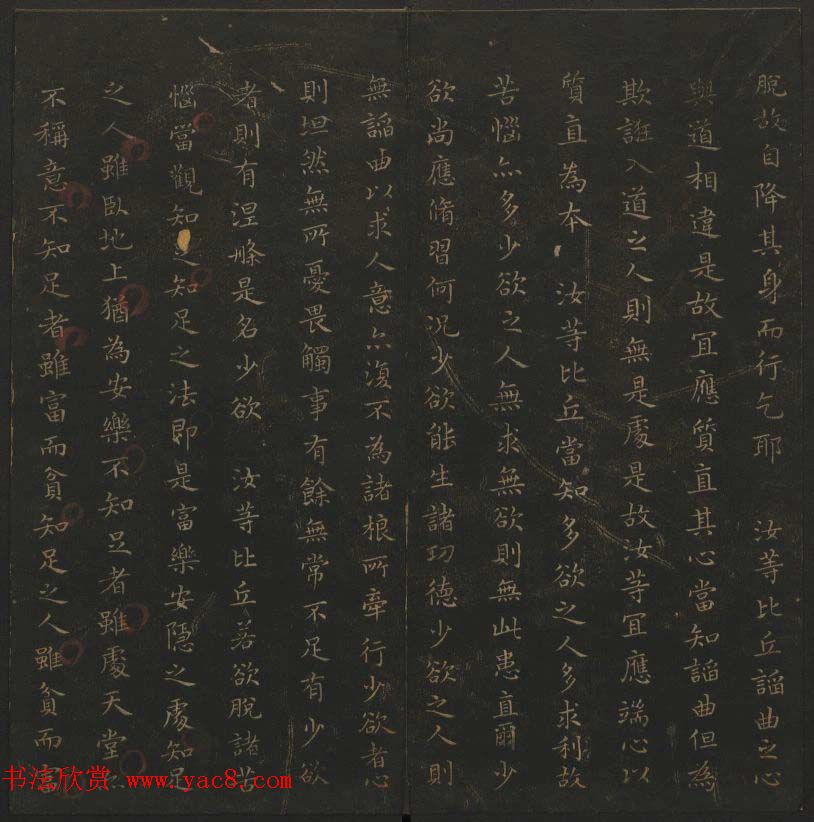 脫故自降其身而行乞耶　汝等比丘諂曲之心
與道相違是故宜應質直其心當知諂曲但為
欺誑入道之人則無是處是故汝等宜應端心以
質直為本　汝等比丘當知多欲之人多求利故
苦惱亦多少欲之人無求無欲則無此患直爾少
欲尚應脩習何況少欲能生諸功德少欲之人則
無諂曲以求人意亦復不為諸根所牽行少欲者心
則坦然無所憂畏觸事有餘無常不足有少欲
者則有涅槃是名少欲　汝等比丘若欲脫諸苦
惱當觀知足知足之法即是富樂安隱之處知足
之人雖臥地上猶為安樂不知足者雖處天堂亦
不稱意不知足者雖富而貧知足之人雖貧而富
书法欣赏 www.yac8.com